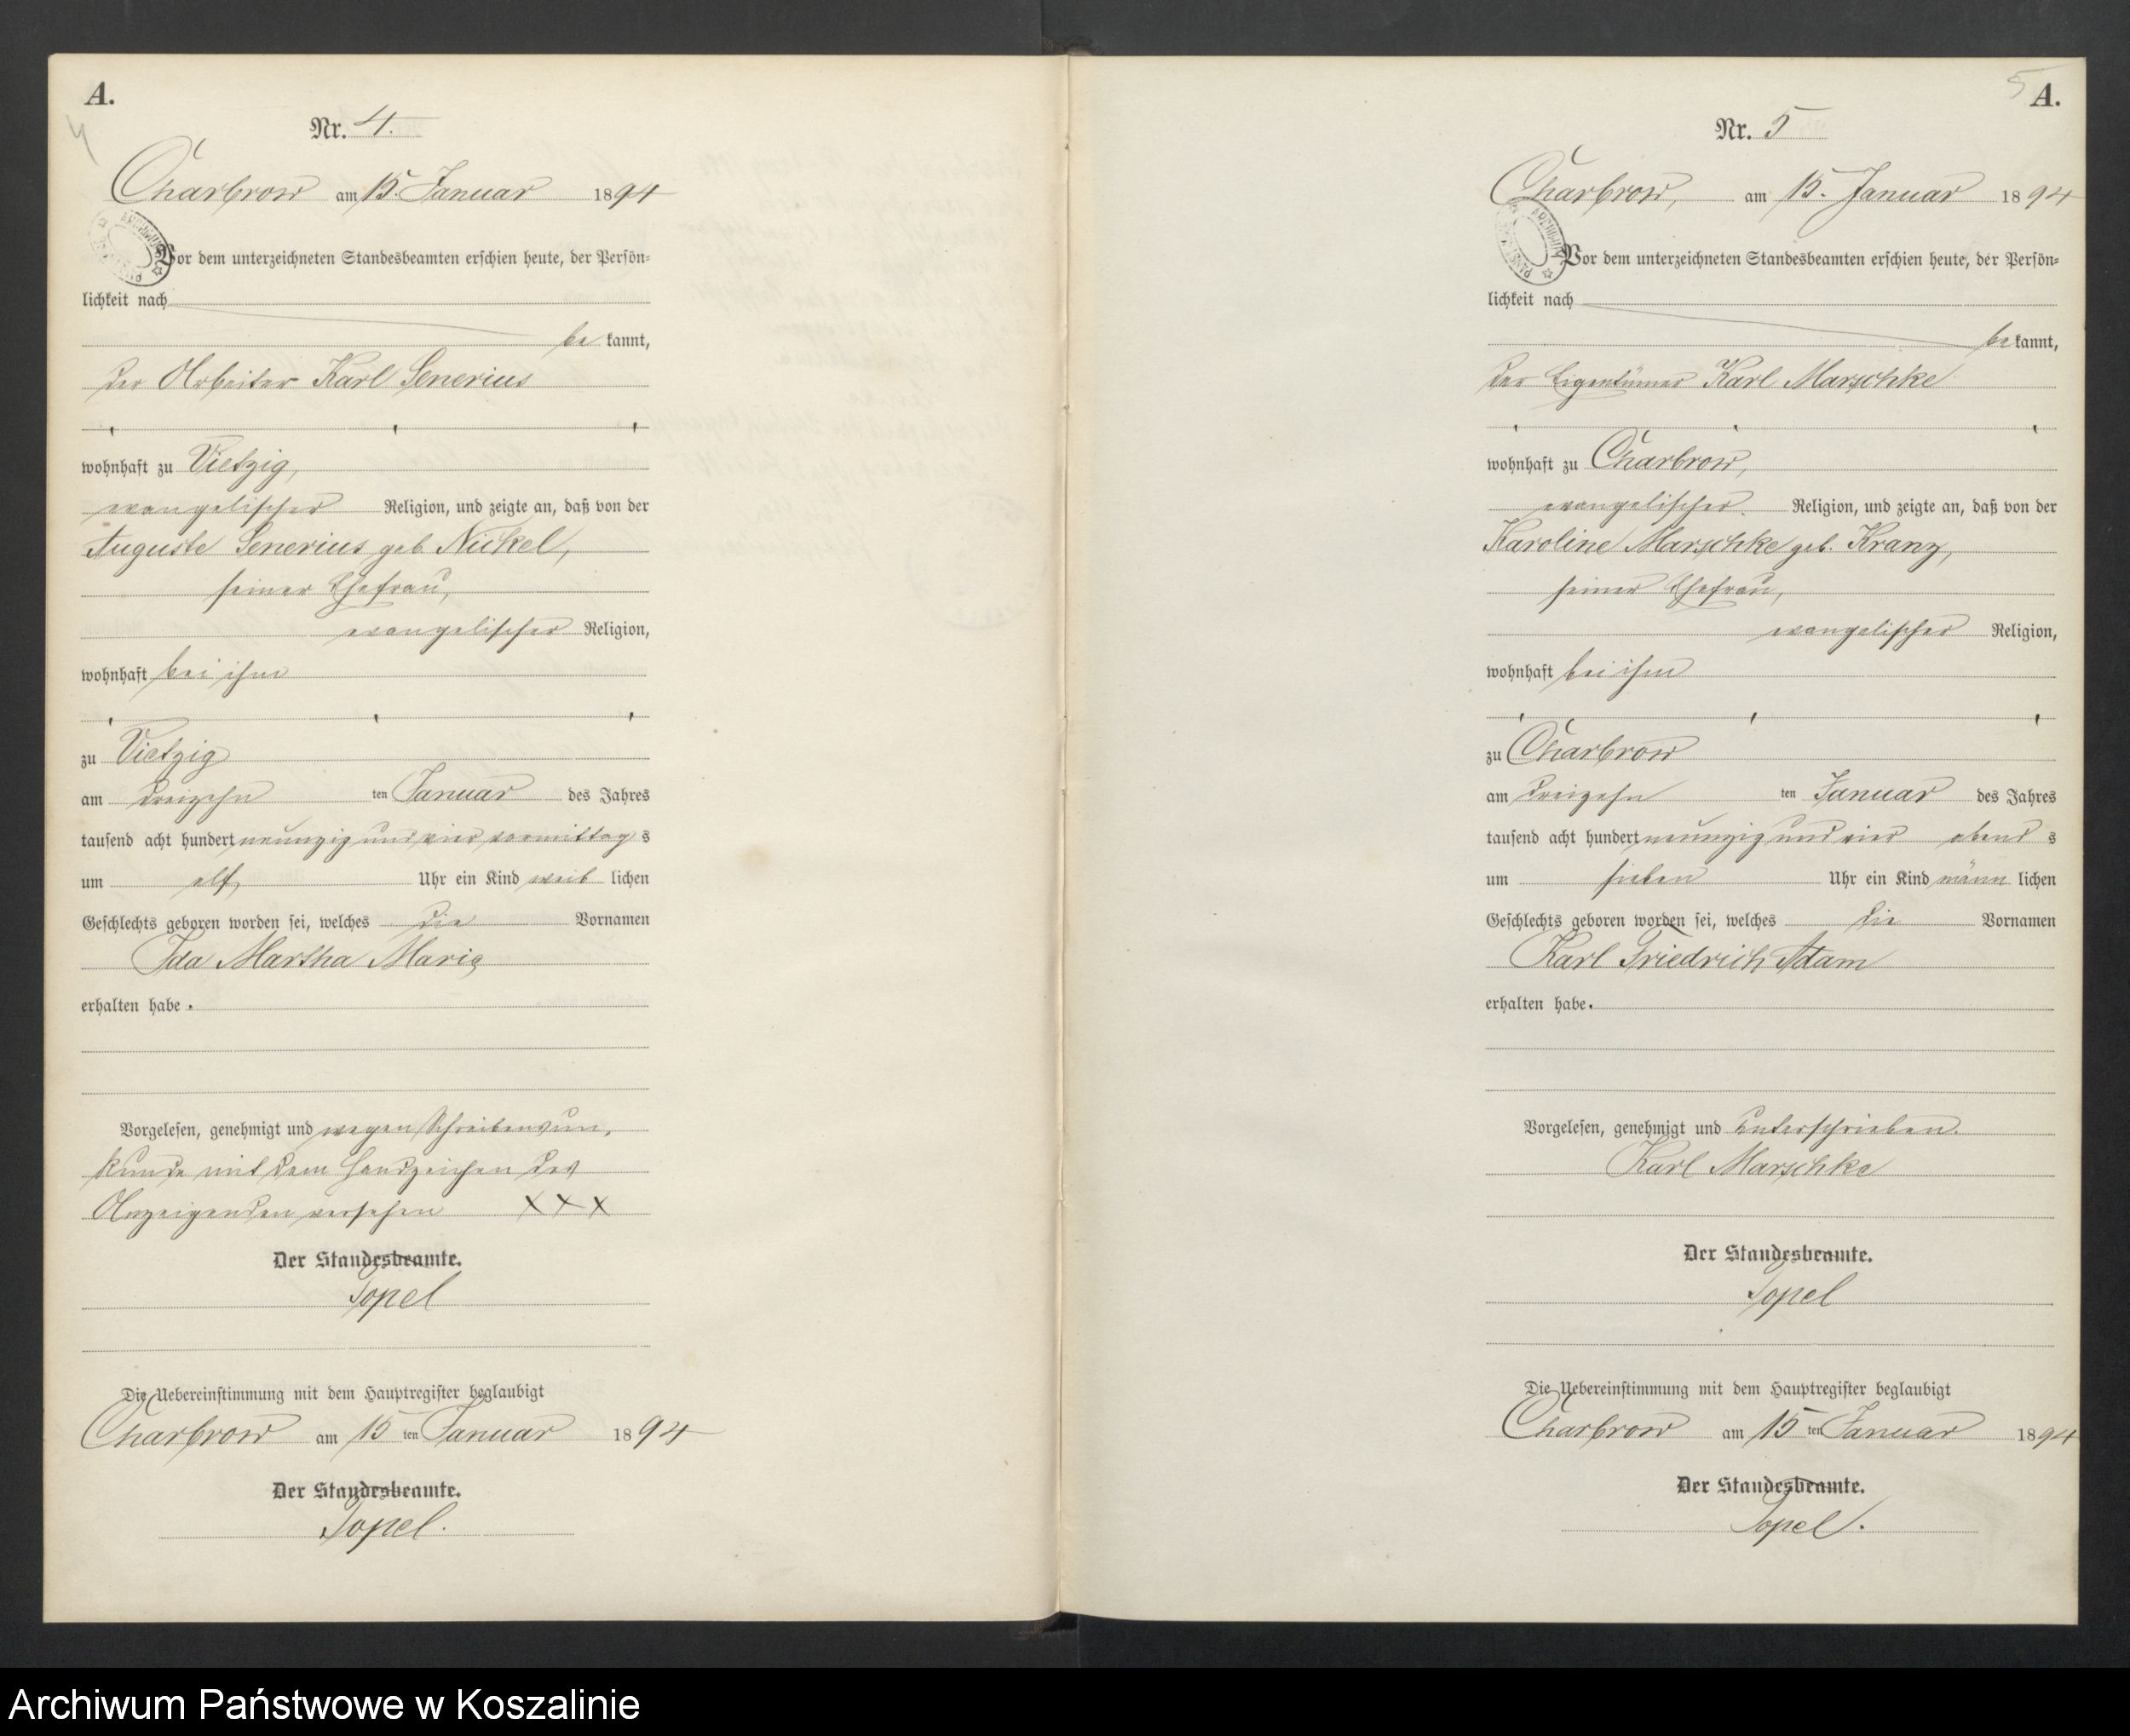 A.
4
Nr. 4.
Charbrow am 15. Januar 1894
Vor dem unterzeichneten Standesbeamten erschien heute, der Persön-
lichkeit nach
be kannt,
der Arbeiter Karl Senerius
wohnhaft zu Vietzig,
evangelischer Religion, und zeigte an, daß von der
Auguste Senerius geb. Nickel,
seiner Ehefrau,
evangelischer Religion,
wohnhaft bei ihm
zu Vietzig
am dreizehn ten Januar des Jahres
tausend acht hundert neunzig und vier vormittag s
um elf Uhr ein Kind weib lichen
Geschlechts geboren worden sei, welches die Vornamen
Ida Martha Marie
erhalten habe.
Vorgelesen, genehmigt und wegen Schreibensun-
kunde mit dem Handzeichen des
Anzeigenden versehen XXX
Der Standesbeamte.
Topel
Die Uebereinstimmung mit dem Hauptregister beglaubigt
Charbrow am 15 ten Januar 1894
Der Standesbeamte.
Topel.
5
A.
Nr. 5
Charbrow, am 15. Januar 1894
Vor dem unterzeichneten Standesbeamten erschien heute, der Persön-
lichkeit nach
be kannt,
der Eigentümer Karl Marschke
wohnhaft zu Charbrow,
evangelischer Religion, und zeigte an, daß von der
Karoline Marschke geb. Kranz,
seiner Ehefrau,
evangelischer Religion,
wohnhaft bei ihm
zu Charbrow
am dreizehn ten Januar des Jahres
tausend acht hundert neunzig und vier abend s
um sieben Uhr ein Kind männ lichen
Geschlechts geboren worden sei, welches die Vornamen
Karl Friedrich Adam
erhalten habe.
Vorgelesen, genehmigt und unterschrieben.
Karl Marschke
Der Standesbeamte.
Topel
Die Uebereinstimmung mit dem Hauptregister beglaubigt
Charbrow am 15 ten Januar 1894
Der Standesbeamte.
Topel.
Archiwum Państwowe w Koszalinie